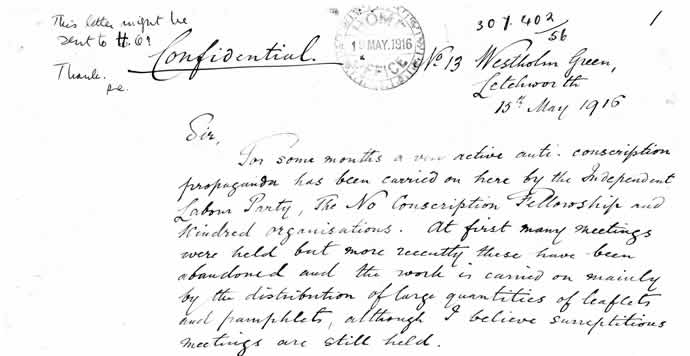 This letter might be
sent to H.O?
Thank.
Confidential.
HOME
15 MAY.1916
OFFICE
307.402
/56
1
No 13 Westholm Green,
Letchworth
15th May 1916
Sir,
For some months a very active anti-conscription
propaganda has been carried on here by the Independent
Labour Party, The No Conscription Fellowship and
Kindred organisations. At first many meetings
were held but more recently these have been
abandoned and the work is carried on mainly
by the distribution of large quantities of leaflets
and pamphlets, although I believe surreptitious
meetings are still held.